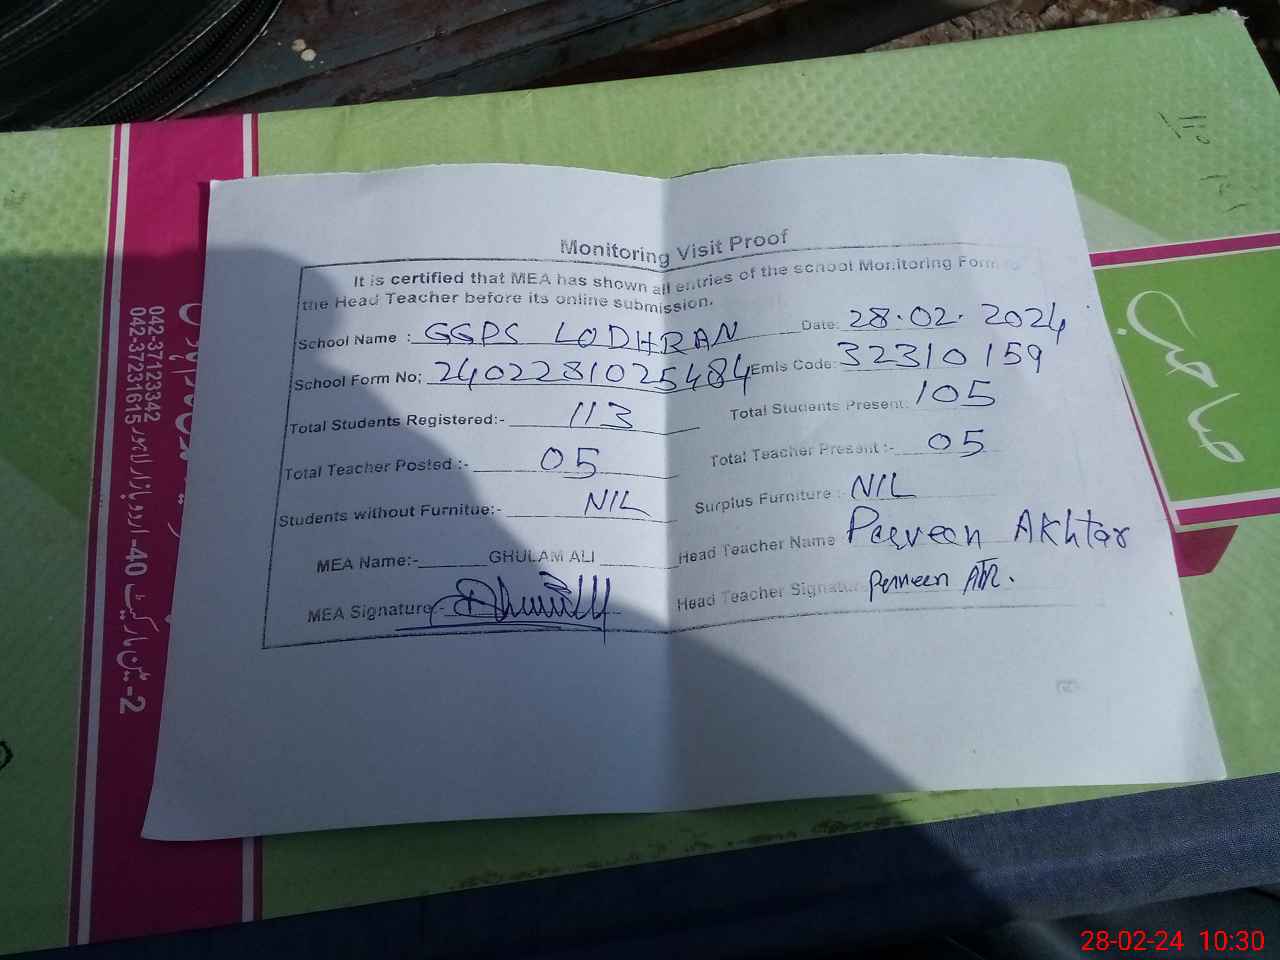 Monitoring Visit Proof
It is certified that MEA has shown all entries of the school Monitoring Form to
the Head Teacher before its online submission.
School Name : GGPS LODHRAN Date: 28.02.2024
School Form No: 2402281025484 Emis Code: 32310159
Total Students Registered:- 113 Total Students Present: 105
Total Teacher Posted :- 05 Total Teacher Present :- 05
Students without Furnitue:- NIL Surplus Furniture :- NIL
MEA Name:- GHULAM ALI Head Teacher Name Perveen Akhtar
MEA Signature:- Head Teacher Signature Perveen
042-37123342
042-37231615
2- میٹن مارکیٹ 40- اردو بازار لاہور
28-02-24 10:30